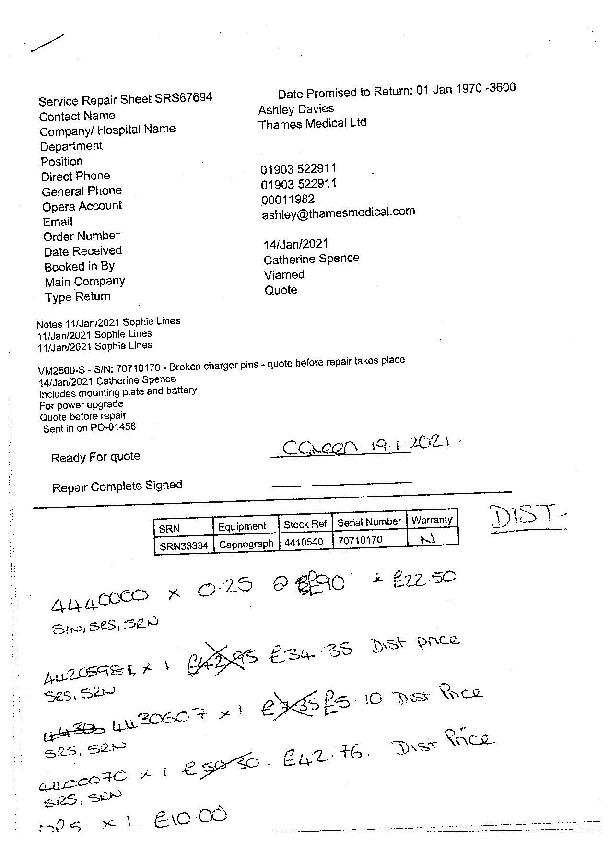 Service Repair Sheet SRS67694
Date Promised to Return: 01 Jan 1970 -3600
Contact Name Ashley Davies
Company/ Hospital Name Thames Medical Ltd
Department
Position
Direct Phone 01903 522911
General Phone 01903 522911
Opera Account 00011982
Email ashley@thamesmedical.com
Order Number
Date Received 14/Jan/2021
Booked in By Catherine Spence
Main Company Viamed
Type Return Quote
Notes 11/Jan/2021 Sophie Lines
11/Jan/2021 Sophie Lines
11/Jan/2021 Sophie Lines
VM2500-S - S/N: 70710170 - Broken charger pins - quote before repair takes place
14/Jan/2021 Catherine Spence
Includes mounting plate and battery
For power upgrade
Quote before repair
Sent in on PO-01456
Ready For quote 19.1.2021.
Repair Complete Signed
DIST.
SRN Equipment Stock Ref Serial Number Warranty
Capnograph 4410540 70710170 N
4440000 x 0.25 @ £90 = £22.50
SIN, SRS, SRN
x 1 £42.95 £34.35 Dist price
SRS, SRN
4430607 x 1 £5.10 Dist Price
SRS, SRN
4400070 x 1 £42.76. Dist Price
SRS, SRN
x 1 £10.00